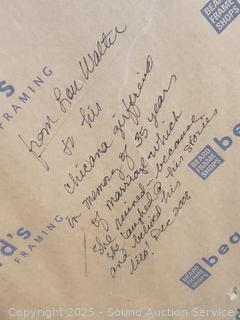 BEARD
FRAME
SHOPS
beard's
FRAMING
from Lou Walter
to his
chicana girlfriend
in memory of 35 years
of marriage which
she ruined - because
she laughed @ his stories
and believed his
lies! Dec 2008
BEARD
FRAME
SHOPS
bea
rd's
FRAMING
BEARD
FRAME
SHOPS
Copyright 2025 - Sound Auction Service